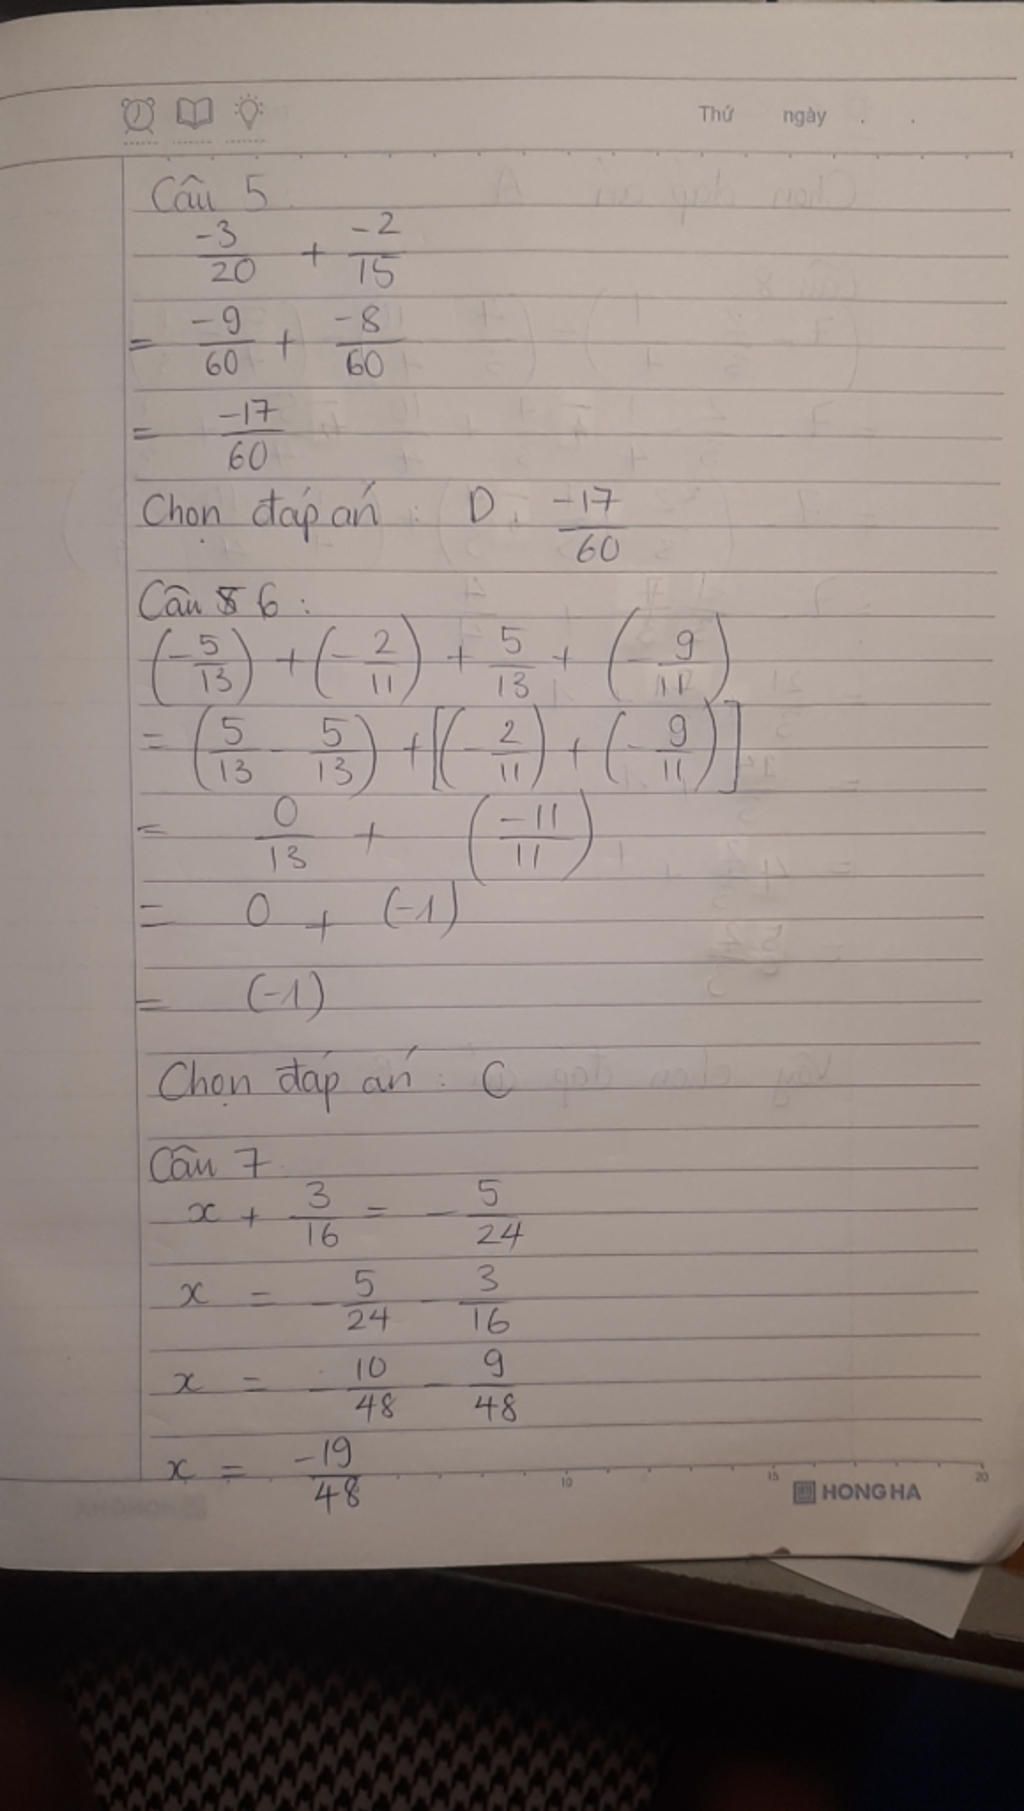 Thứ ngày . .
Câu 5.
-3/20 + -2/15
= -9/60 + -8/60
= -17/60
Chọn đáp án : D. -17/60
Câu 6 :
(-5/13) + (-2/11) + 5/13 + (-9/11)
= (5/13 - 5/13) + [(-2/11) + (-9/11)]
= 0/13 + (-11/11)
= 0 + (-1)
= (-1)
Chọn đáp án : C
Câu 7
x + 3/16 = -5/24
x = -5/24 - 3/16
x = -10/48 - 9/48
x = -19/48
10 15 20
HONG HA